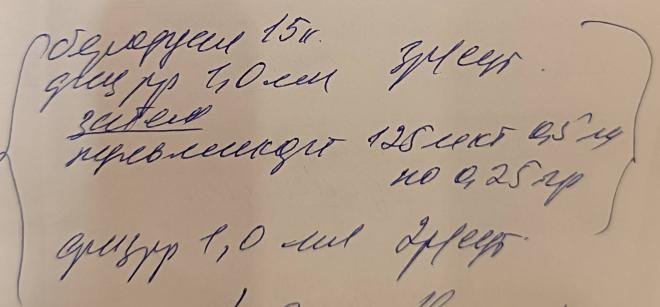 беродуал 15к.
физ рр 1,0 мл 3р/сут.
затем
пульмикорт 125 мкг 0,5 мл
по 0,25 гр
физ рр 1,0 мл 2р/сут.